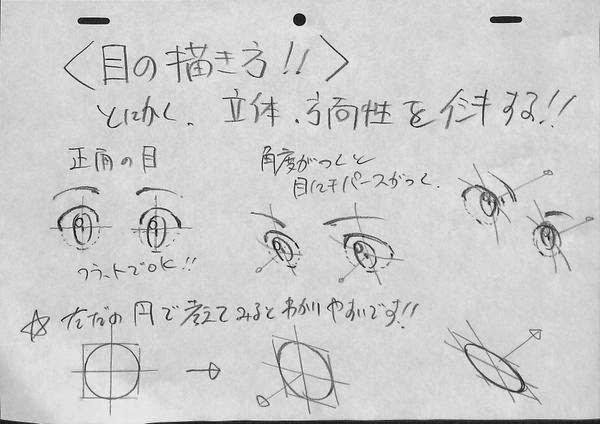 〈目の描き方!!〉
とにかく、立体、方向性をイシキする!!
正面の目
角度がつくと
目にもパースがつく.
フラットでOK!!
☆ ただの円で考えてみるとわかりやすいです!!